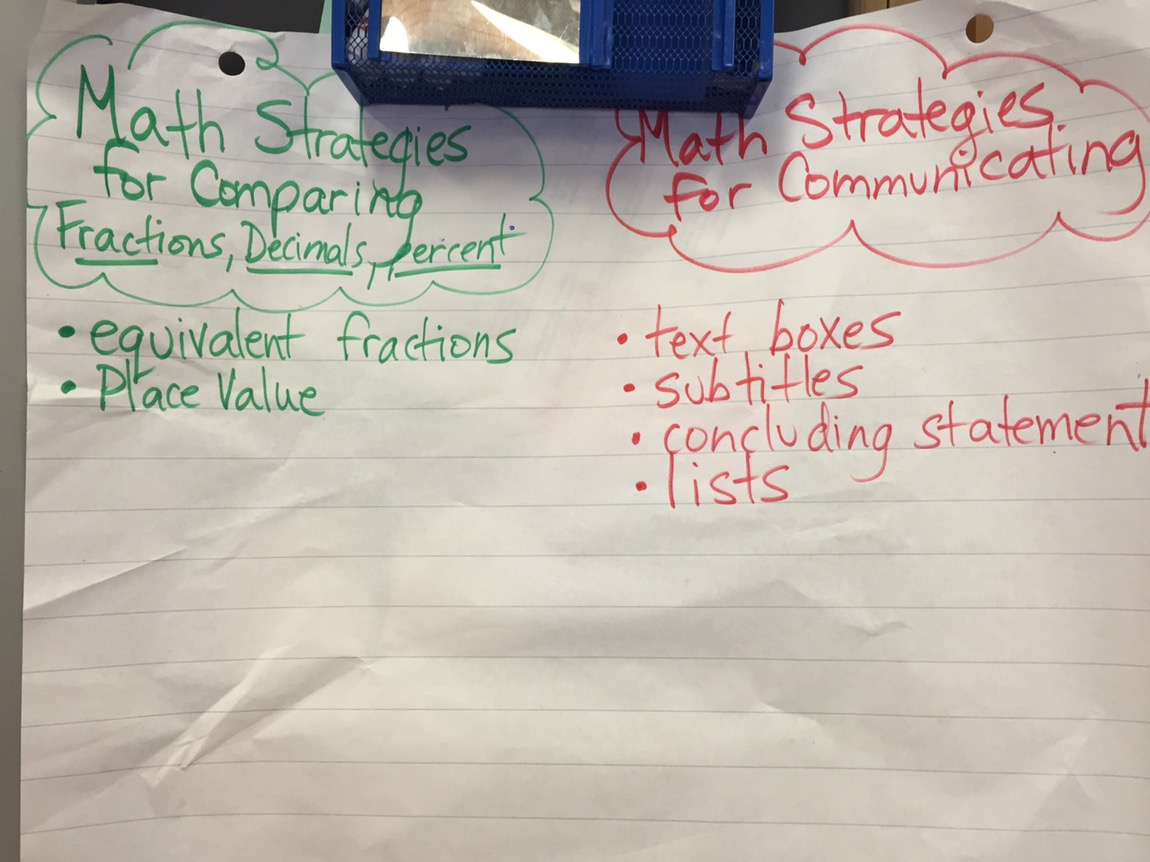 Math Strategies
for Comparing
Fractions, Decimals, percent
• equivalent fractions
• Place Value
Math Strategies
for Communicating
• text boxes
• subtitles
• concluding statement
• lists